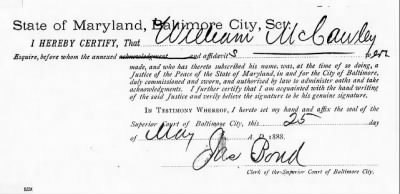 State of Maryland, Baltimore City, Sct:
I HEREBY CERTIFY, That William McCawley
Esquire, before whom the annexed acknowledgment and affidavits
made, and who has thereto subscribed his name, was, at the time of so doing, a
Justice of the Peace of the State of Maryland, in and for the City of Baltimore,
duly commissioned and sworn, and authorized by law to administer oaths and take
acknowledgments. I further certify that I am acquainted with the hand writing
of the said Justice and verily believe the signature to be his genuine signature.
IN TESTIMONY WHEREOF, I hereto set my hand and affix the seal of the
Superior Court of Baltimore City, this 25 day
of May A. D. 1888.
Jas Bond
Clerk of the Superior Court of Baltimore City.